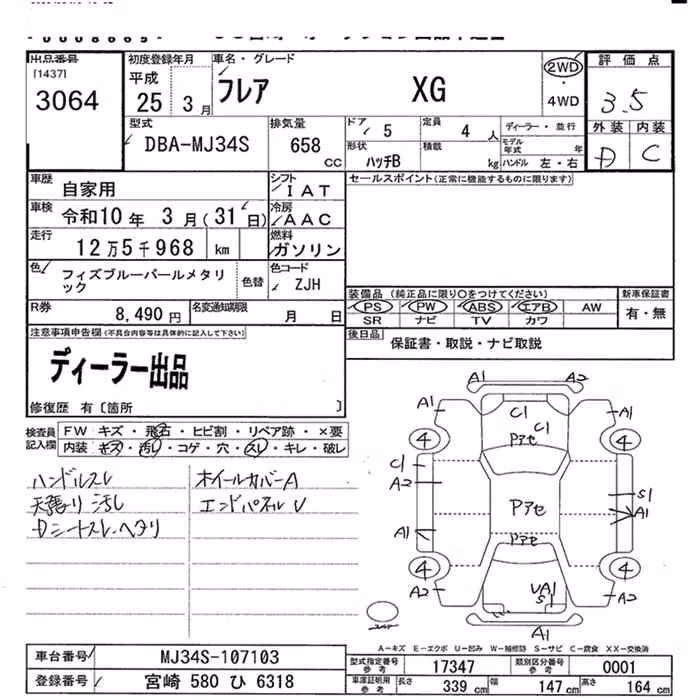 出品番号
[1437]
3064
初度登録年月
平成
25 3月
車名・グレード
フレア XG
2WD
・
4WD
評価点
3.5
外装 内装
D C
型式
DBA-MJ34S
排気量
658 CC
ドア 5
定員 4 人
ディーラー・並行
モデル年式 年
形状 ハッチB
積載 kg
ハンドル 左・右
車歴 自家用
シフト IAT
セールスポイント(正常に機能するものに限ります)
車検 令和10年 3月(31日)
冷房 AAC
走行 12万5千968 km
燃料 ガソリン
色 フィズブルーパールメタリック
色替
色コード ZJH
装備品 (純正品に限り〇をつけてください)
新車保証書
PS PW ABS エアB AW
有・無
SR ナビ TV カワ
R券 8,490円
名変通知期限 月 日
後日品 保証書・取説・ナビ取説
注意事項申告欄(不具合内容等は具体的に記入して下さい)
ディーラー出品
修復歴 有〔箇所 〕
検査員記入欄
FW キズ・飛石・ヒビ割・リペア跡・×要
内装 キズ・汚レ・コゲ・穴・スレ・キレ・破レ
ハンドルスレ
天張り 汚れ
Dシートスレ、ヘタリ
ホイールカバーA
エンドパネルU
A1 A2
A1 C1 C1 A1
4 Pアセ 4
C1
A2
Pアセ S1
A1
A1 Pアセ
4 4
A2 UA1 A2
S
A1
A-キズ E-エクボ U-凹み W-補修跡 S-サビ C-腐食 XX-交換済
車台番号 MJ34S-107103
登録番号 宮崎 580 ひ 6318
型式指定番号 参考 17347
類別区分番号 参考 0001
車庫証明用 参考 長さ 339 cm 幅 147 cm 高さ 164 cm